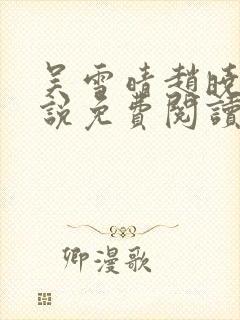 吴雪晴趙晓
說免費閱讀
卿漫歌